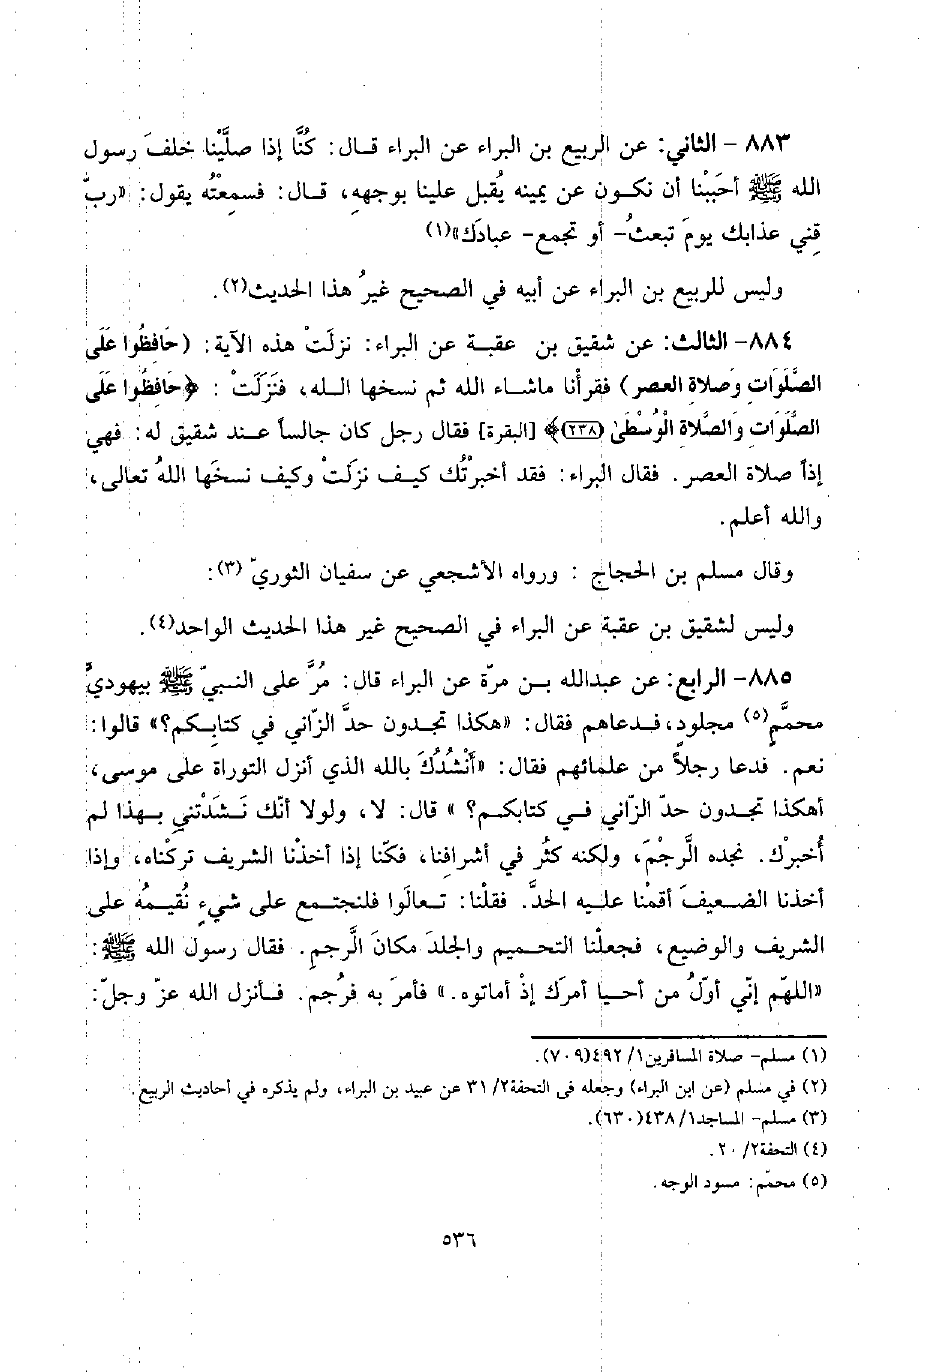 ٨٨٣ – الثاني: عن الربيع بن البراء عن البراء قال: كُنَّا إذا صلَّيْنا خلفَ رسول
الله ﷺ أحَبَبْنا أن نكون عن يمينه يُقبل علينا بوجههِ، قال: فسمِعتُه يقول: «ربِّ
قِني عذابك يومَ تبعثُ- أو تجمع- عبادَك»(١)
وليس للربيع بن البراء عن أبيه في الصحيح غيرُ هذا الحديث(٢).
٨٨٤- الثالث: عن شقيق بن عقبة عن البراء: نزلَتْ هذه الآية: (حَافِظُوا عَلَى
الصَّلَوَاتِ وَصَلاة العصر) فقرأنا ماشاء الله ثم نسخها الله، فنَزَلَتْ : ﴿حَافِظُوا عَلَى
الصَّلَوَاتِ وَالصَّلاةِ الْوُسْطَىٰ (٢٣٨)﴾ [البقرة] فقال رجل كان جالساً عند شقيق له: فهي
إذاً صلاة العصر. فقال البراء: فقد أخبرْتُك كيف نزلَتْ وكيف نسخَها اللهُ تعالى،
والله أعلم.
وقال مسلم بن الحجاج : ورواه الأشجعي عن سفيان الثوريّ (٣):
وليس لشقيق بن عقبة عن البراء في الصحيح غير هذا الحديث الواحد(٤).
٨٨٥- الرابع: عن عبدالله بن مرّة عن البراء قال: مُرَّ على النبيّ ﷺ بيهوديٍّ
محمَّمٍ(٥) مجلودٍ، فدعاهم فقال: «هكذا تجدون حدَّ الزّاني في كتابِكم؟» قالوا:
نعم. فدعا رجلاً من علمائهم فقال: «أَنْشُدُكَ بالله الذي أنزل التوراة على موسى،
أهكذا تجدون حدّ الزّاني في كتابكم؟ » قال: لا، ولولا أنّك نَشَدْتني بهذا لم
أُخبرْك. نجده الرَّجْمَ، ولكنه كثُر في أشرافنا، فكّنا إذا أخذْنا الشريف تركْناه، وإذا
أخذنا الضعيفَ أقمْنا عليه الحدَّ. فقلْنا: تعالَوا فلنجتمع على شيءٍ نُقيمُه على
الشريف والوضيع، فجعلْنا التحميم والجلدَ مكانَ الرَّجمِ. فقال رسول الله ﷺ:
«اللهمّ إنّي أوّلُ من أحيا أمرَك إذْ أماتوه.» فأمرَ به فرُجم. فأنزل الله عزّ وجلّ:
(١) مسلم- صلاة المسافرين١/ ٤٩٢(٧٠٩).
(٢) في مسلم (عن ابن البراء) وجعله فى التحفة٢/ ٣١ عن عبيد بن البراء، ولم يذكره في أحاديث الربيع.
(٣) مسلم- المساجد١/ ٤٣٨(٦٣٠).
(٤) التحفة٢/ ٢٠.
(٥) محمّم: مسود الوجه.
٥٣٦